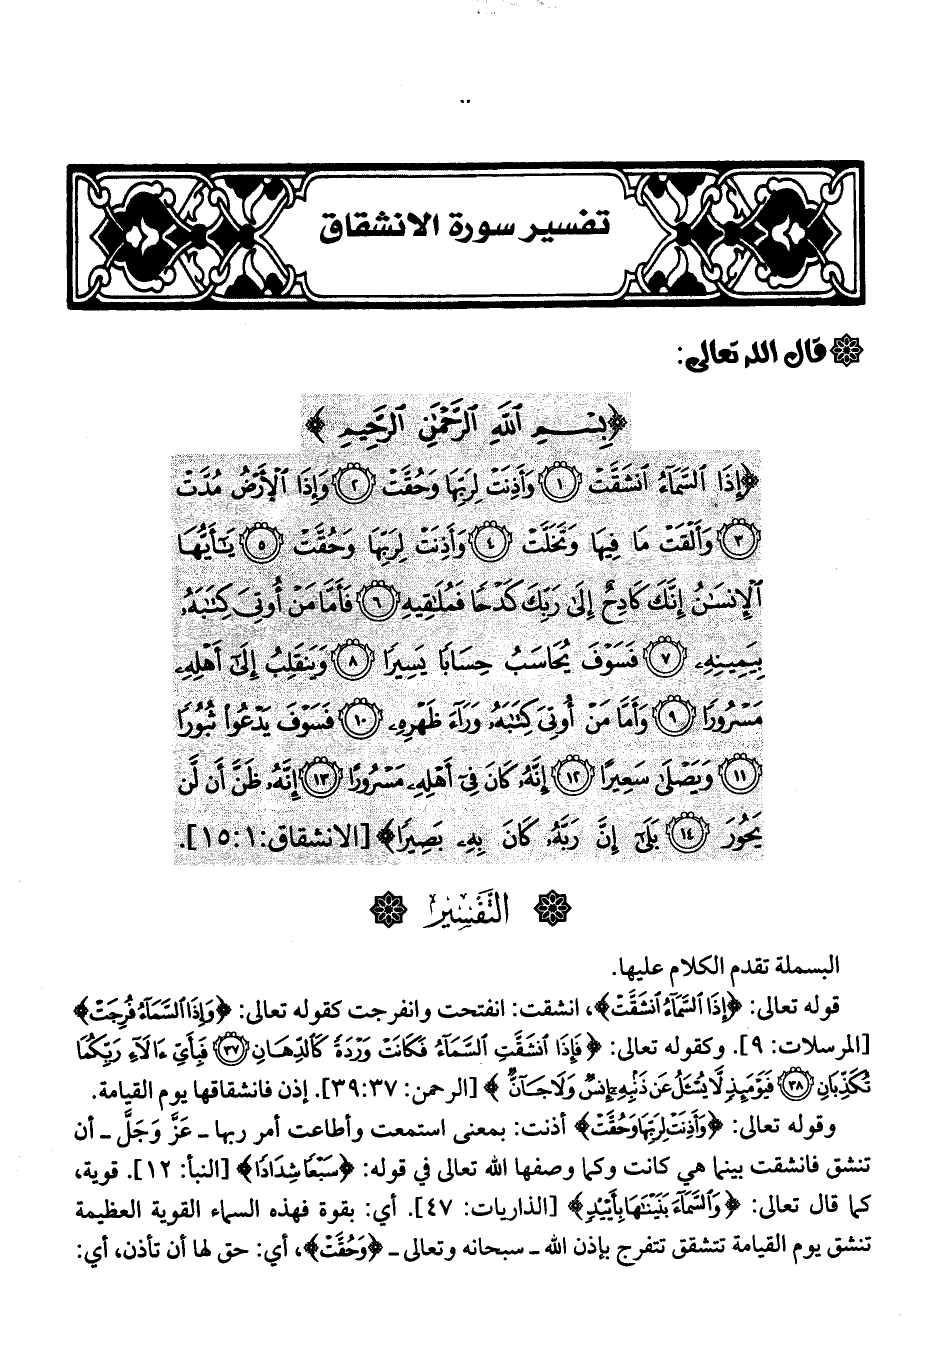 تفسير سورة الانشقاق
قال الله تعالى:
﴿بِسْمِ ٱللَّهِ ٱلرَّحْمَٰنِ ٱلرَّحِيمِ﴾
﴿إِذَا ٱلسَّمَآءُ ٱنشَقَّتْ ١ وَأَذِنَتْ لِرَبِّهَا وَحُقَّتْ ٢ وَإِذَا ٱلْأَرْضُ مُدَّتْ
٣ وَأَلْقَتْ مَا فِيهَا وَتَخَلَّتْ ٤ وَأَذِنَتْ لِرَبِّهَا وَحُقَّتْ ٥ يَٰٓأَيُّهَا
ٱلْإِنسَٰنُ إِنَّكَ كَادِحٌ إِلَىٰ رَبِّكَ كَدْحًا فَمُلَٰقِيهِ ٦ فَأَمَّا مَنْ أُوتِيَ كِتَٰبَهُۥ
بِيَمِينِهِۦ ٧ فَسَوْفَ يُحَاسَبُ حِسَابًا يَسِيرًا ٨ وَيَنقَلِبُ إِلَىٰٓ أَهْلِهِۦ
مَسْرُورًا ٩ وَأَمَّا مَنْ أُوتِيَ كِتَٰبَهُۥ وَرَآءَ ظَهْرِهِۦ ١٠ فَسَوْفَ يَدْعُوا۟ ثُبُورًا
١١ وَيَصْلَىٰ سَعِيرًا ١٢ إِنَّهُۥ كَانَ فِيٓ أَهْلِهِۦ مَسْرُورًا ١٣ إِنَّهُۥ ظَنَّ أَن لَّن
يَحُورَ ١٤ بَلَىٰٓ إِنَّ رَبَّهُۥ كَانَ بِهِۦ بَصِيرًا﴾ [الانشقاق: ١: ١٥].
التَّفْسِير
البسملة تقدم الكلام عليها.
قوله تعالى: ﴿إِذَا ٱلسَّمَآءُ ٱنشَقَّتْ﴾، انشقت: انفتحت وانفرجت كقوله تعالى: ﴿وَإِذَا ٱلسَّمَآءُ فُرِجَتْ﴾
[المرسلات: ٩]. وكقوله تعالى: ﴿فَإِذَا ٱنشَقَّتِ ٱلسَّمَآءُ فَكَانَتْ وَرْدَةً كَٱلدِّهَانِ ٣٧ فَبِأَيِّ ءَالَآءِ رَبِّكُمَا
تُكَذِّبَانِ ٣٨ فَيَوْمَئِذٍ لَّا يُسْـَٔلُ عَن ذَنۢبِهِۦٓ إِنسٌ وَلَا جَآنٌّ﴾ [الرحمن: ٣٧: ٣٩]. إذن فانشقاقها يوم القيامة.
وقوله تعالى: ﴿وَأَذِنَتْ لِرَبِّهَا وَحُقَّتْ﴾ أذنت: بمعنى استمعت وأطاعت أمر ربها ـ عَزَّ وَجَلَّ ـ أن
تنشق فانشقت بينما هي كانت وكما وصفها الله تعالى في قوله: ﴿سَبْعًا شِدَادًا﴾ [النبأ: ١٢]. قوية،
كما قال تعالى: ﴿وَٱلسَّمَآءَ بَنَيْنَٰهَا بِأَيْي۟دٍ﴾ [الذاريات: ٤٧]. أي: بقوة فهذه السماء القوية العظيمة
تنشق يوم القيامة تتشقق تتفرج بإذن الله ـ سبحانه وتعالى ـ ﴿وَحُقَّتْ﴾، أي: حق لها أن تأذن، أي: